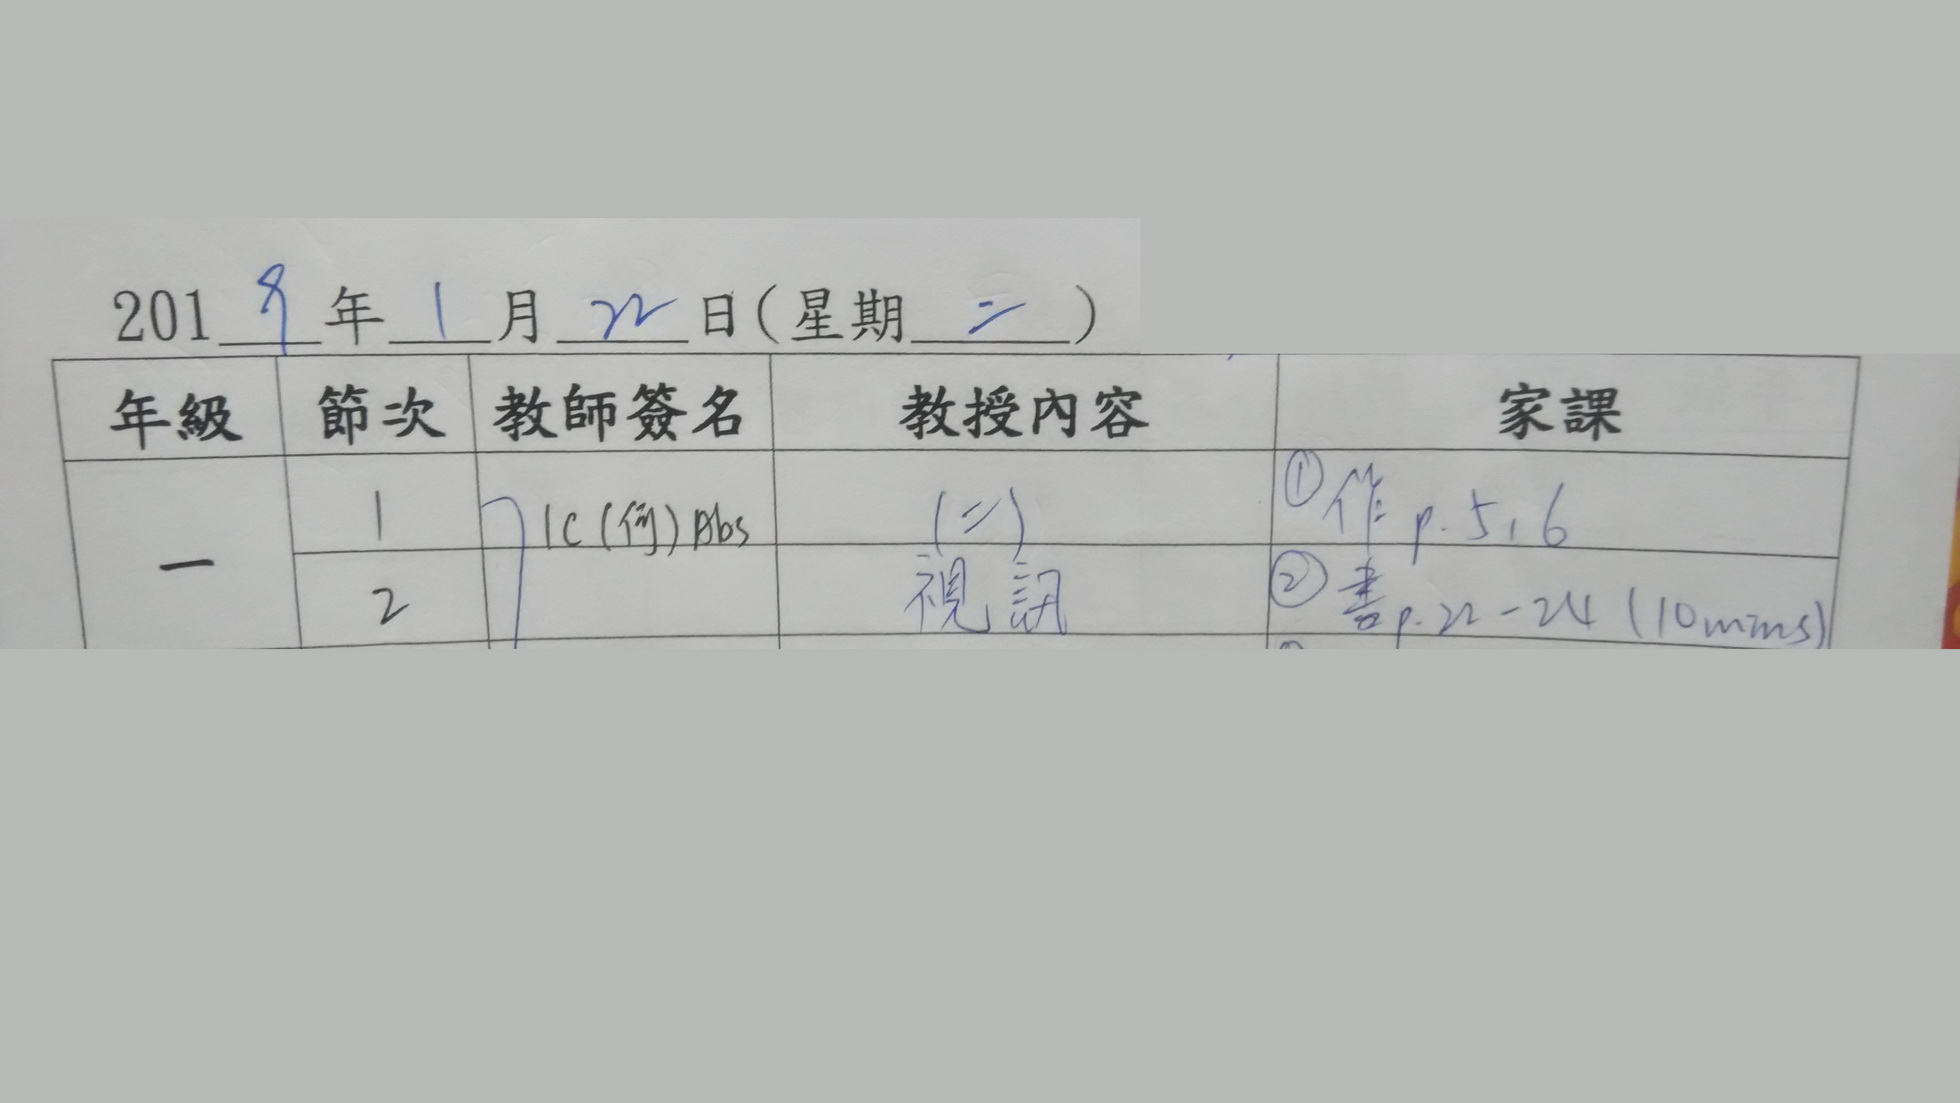 2019年1月22日(星期二)
年級 節次 教師簽名 教授內容 家課
一 1 1C(何)Abs (二) ①作 p.5,6
2 視訊 ②書 p.22-24 (10mins)